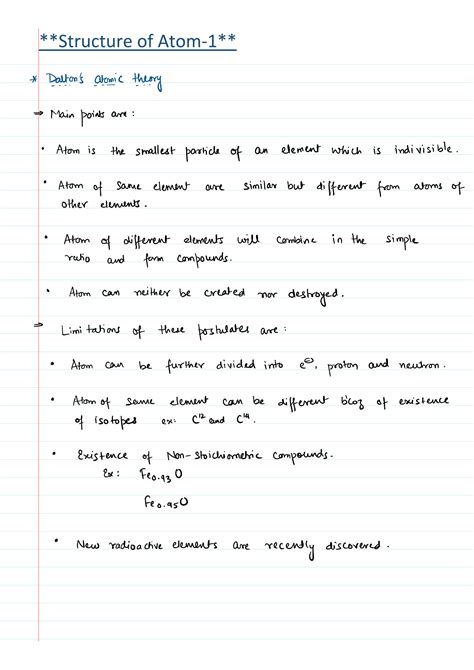 **Structure of Atom-1**
* Dalton's atomic theory
⇒ Main points are :
• Atom is the smallest particle of an element which is indivisible.
• Atom of same element are similar but different from atoms of
other elements.
• Atom of different elements will combine in the simple
ratio and form compounds.
• Atom can neither be created nor destroyed.
⇒ Limitations of these postulates are :
• Atom can be further divided into e⊖, proton and neutron.
• Atom of same element can be different b'coz of existence
of isotopes ex: C¹² and C¹⁴.
• Existence of Non-Stoichiometric compounds.
Ex: Fe₀.₉₃O
Fe₀.₉₅O
• New radioactive elements are recently discovered.